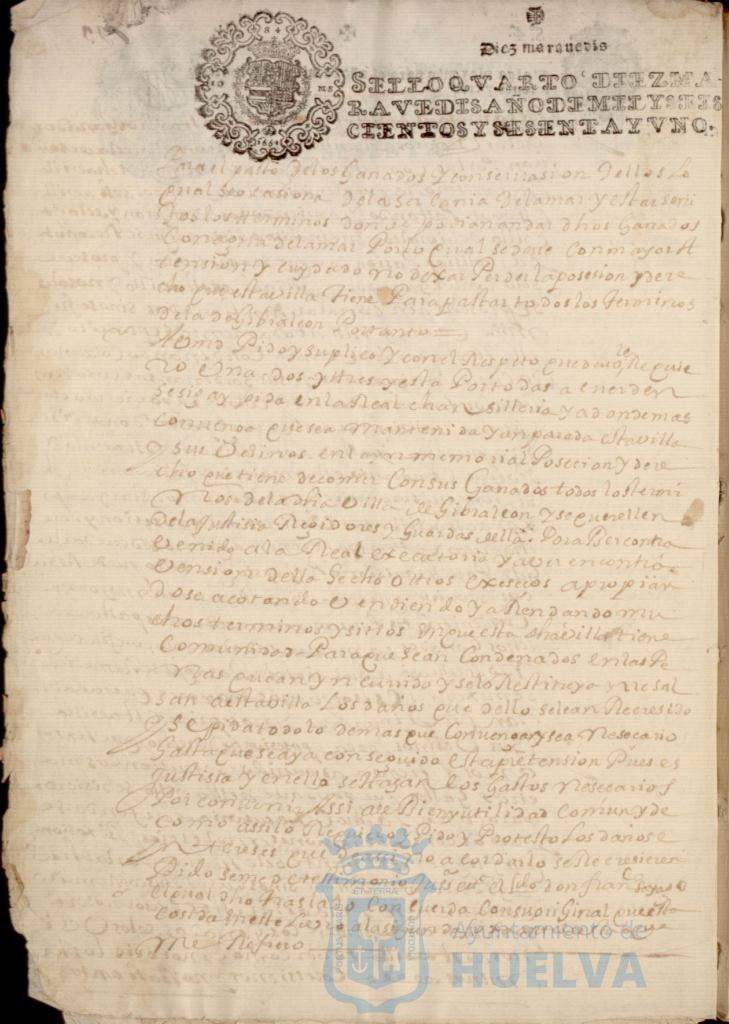 Diez maravedis
SELLO QVARTO, DIEZ MA-
RAVEDIS, AÑO DE MIL Y SEIS
CIENTOS Y SESENTA Y VNO.
1661
Para el pasto de los Ganados Y conseruasion dellos Lo
qual se ocasiona de la Ser Cania Delamar y estar
todos los terminos donde podian andar dhos Ganados
Con orta delamar Porlo qual sedeue Con mayor A
tension y cuydado no dexar Perder la posesion y dere
cho que esta villa tiene Para pastar todos los terminos
dela de Gibraleon Portanto
A Vmd Pido y suplico Y con el Respeto que deuo le Requie
ro Una dos y tres y esta Por todas a
se siga y pida en la Real chansilleria y adonde mas
Conuenga que sea mantenida y anparada esta villa
y sus Vesinos en la ynmemorial Posecion y dere
cho que tiene de comer Con sus Ganados todos los termi
nos de la dha villa de Gibraleon y se querellen
dela Justisia Regidores y Guardas della Por aver contra
venido a la Real executoria y aver en contra
vension della hecho otros exsesos apropian
dose acotando Vendiendo y aRendando mu
chos terminos y sitios en que esta dha villa tiene
Comunidad Para que sean Condenados en las Pe
nas que an yncurrido y se lo Restituya y
a esta villa Los daños que dello se le an Recresido
y se pida todo lo demas que Conuenga y sea Nesesario
hasta que se aya conseguido esta pretension Pues es
Justisia y en ello se hagan los Gastos Nesesarios
Por conuenir Assi al Bien y utilidad Comun y de
como assi lo Requiero y Pido y Protesto Los daños e
yntereses que de no acordarlo se le recresieren
Pido se me de testimonio don Fran
El qual dho traslado Concuerda Con su oriGinal que
en este Libro
Me Refiero
Ayuntamiento de
HUELVA